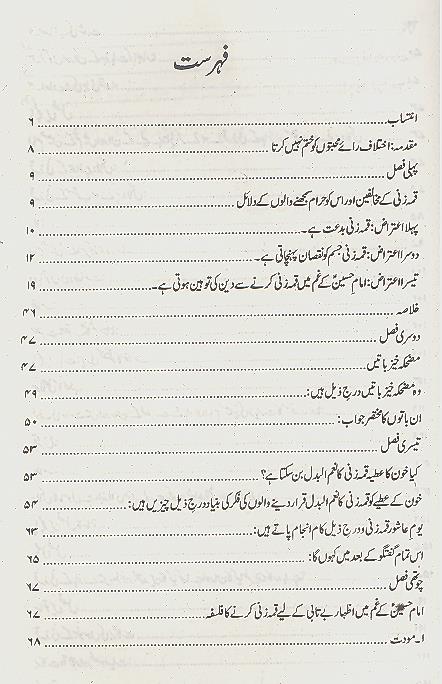 فہرست
انتساب ۶
مقدمہ: اختلاف رائے محبتوں کو ختم نہیں کرتا ۸
پہلی فصل ۹
قمہ زنی کے مخالفین اور اس کو حرام سمجھنے والوں کے دلائل ۹
پہلا اعتراض: قمہ زنی بدعت ہے۔ ۱۰
دوسرا اعتراض: قمہ زنی جسم کو نقصان پہنچاتی ہے۔ ۱۲
تیسرا اعتراض: امام حسینؑ کے غم میں قمہ زنی کرنے سے دین کی توہین ہوتی ہے۔ ۱۹
خلاصہ ۴۶
دوسری فصل ۴۷
مضحکہ خیز باتیں ۴۷
وہ مضحکہ خیز باتیں درج ذیل ہیں: ۴۹
ان باتوں کا مختصر جواب: ۵۰
تیسری فصل ۵۳
کیا خون کا عطیہ قمہ زنی کا نعم البدل بن سکتا ہے؟ ۵۳
خون کے عطیے کو قمہ زنی کا نعم البدل قرار دینے والوں کی فکر کی بنیاد درج ذیل چیزیں ہیں: ۵۴
یوم عاشور قمہ زنی و درج ذیل کام انجام پاتے ہیں: ۶۳
اس تمام گفتگو کے بعد میں کہوں گا: ۶۵
چوتھی فصل ۶۷
امام حسینؑ کے غم میں اظہار بے تابی کے لیے قمہ زنی کرنے کا فلسفہ ۶۷
۱۔ مودت ۶۸